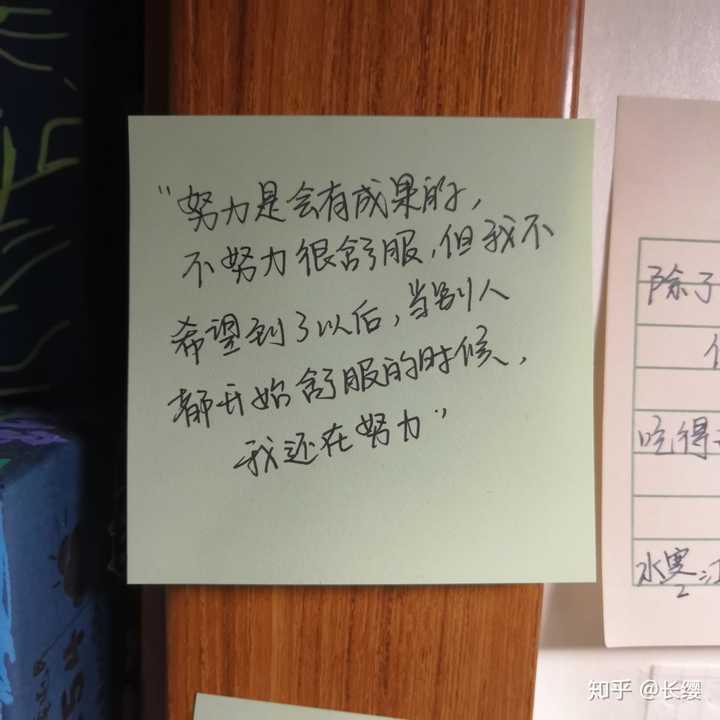 “努力是会有成果的,
不努力很舒服,但我不
希望到了以后,当别人
都开始舒服的时候,
我还在努力”
除了
吃得
水寒江
知乎 @长缨